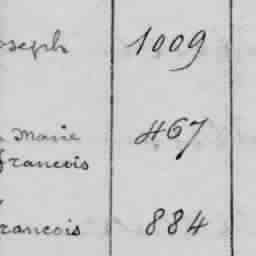 oseph 1009
Marie 467
francois
rancois 884